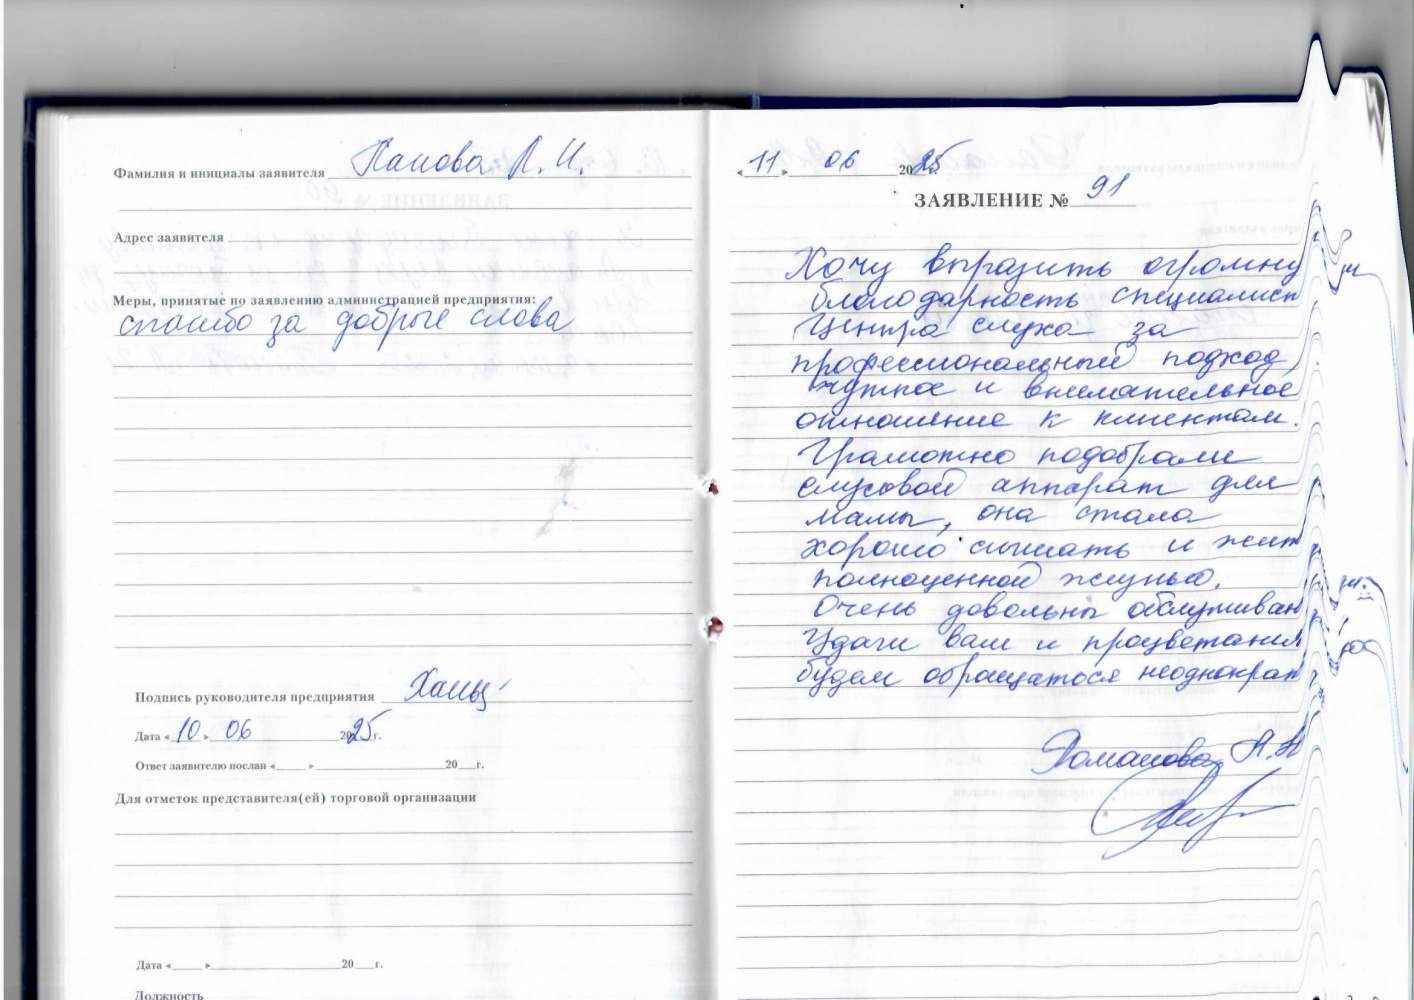 Фамилия и инициалы заявителя Панова Л. И.
Адрес заявителя
Меры, принятые по заявлению администрацией предприятия:
спасибо за добрые слова
Подпись руководителя предприятия
Дата « 10 » 06 2025 г.
Ответ заявителю послан «____» ____ 20__ г.
Для отметок представителя(ей) торговой организации
Дата «____» ____ 20__ г.
Должность
« 11 » 06 2025 г.
ЗАЯВЛЕНИЕ № 91
Хочу выразить огромну
благодарность специалист
Центра слуха за
профессиональный подход,
чуткое и внимательное
отношение к клиентам.
Грамотно подобрали
слуховой аппарат для
мамы, она стала
хорошо слышать и жит
полноценной жизнью.
Очень довольны обслуживан
Удачи вам и процветания
будем обращаться неоднократ
Романова А.Н